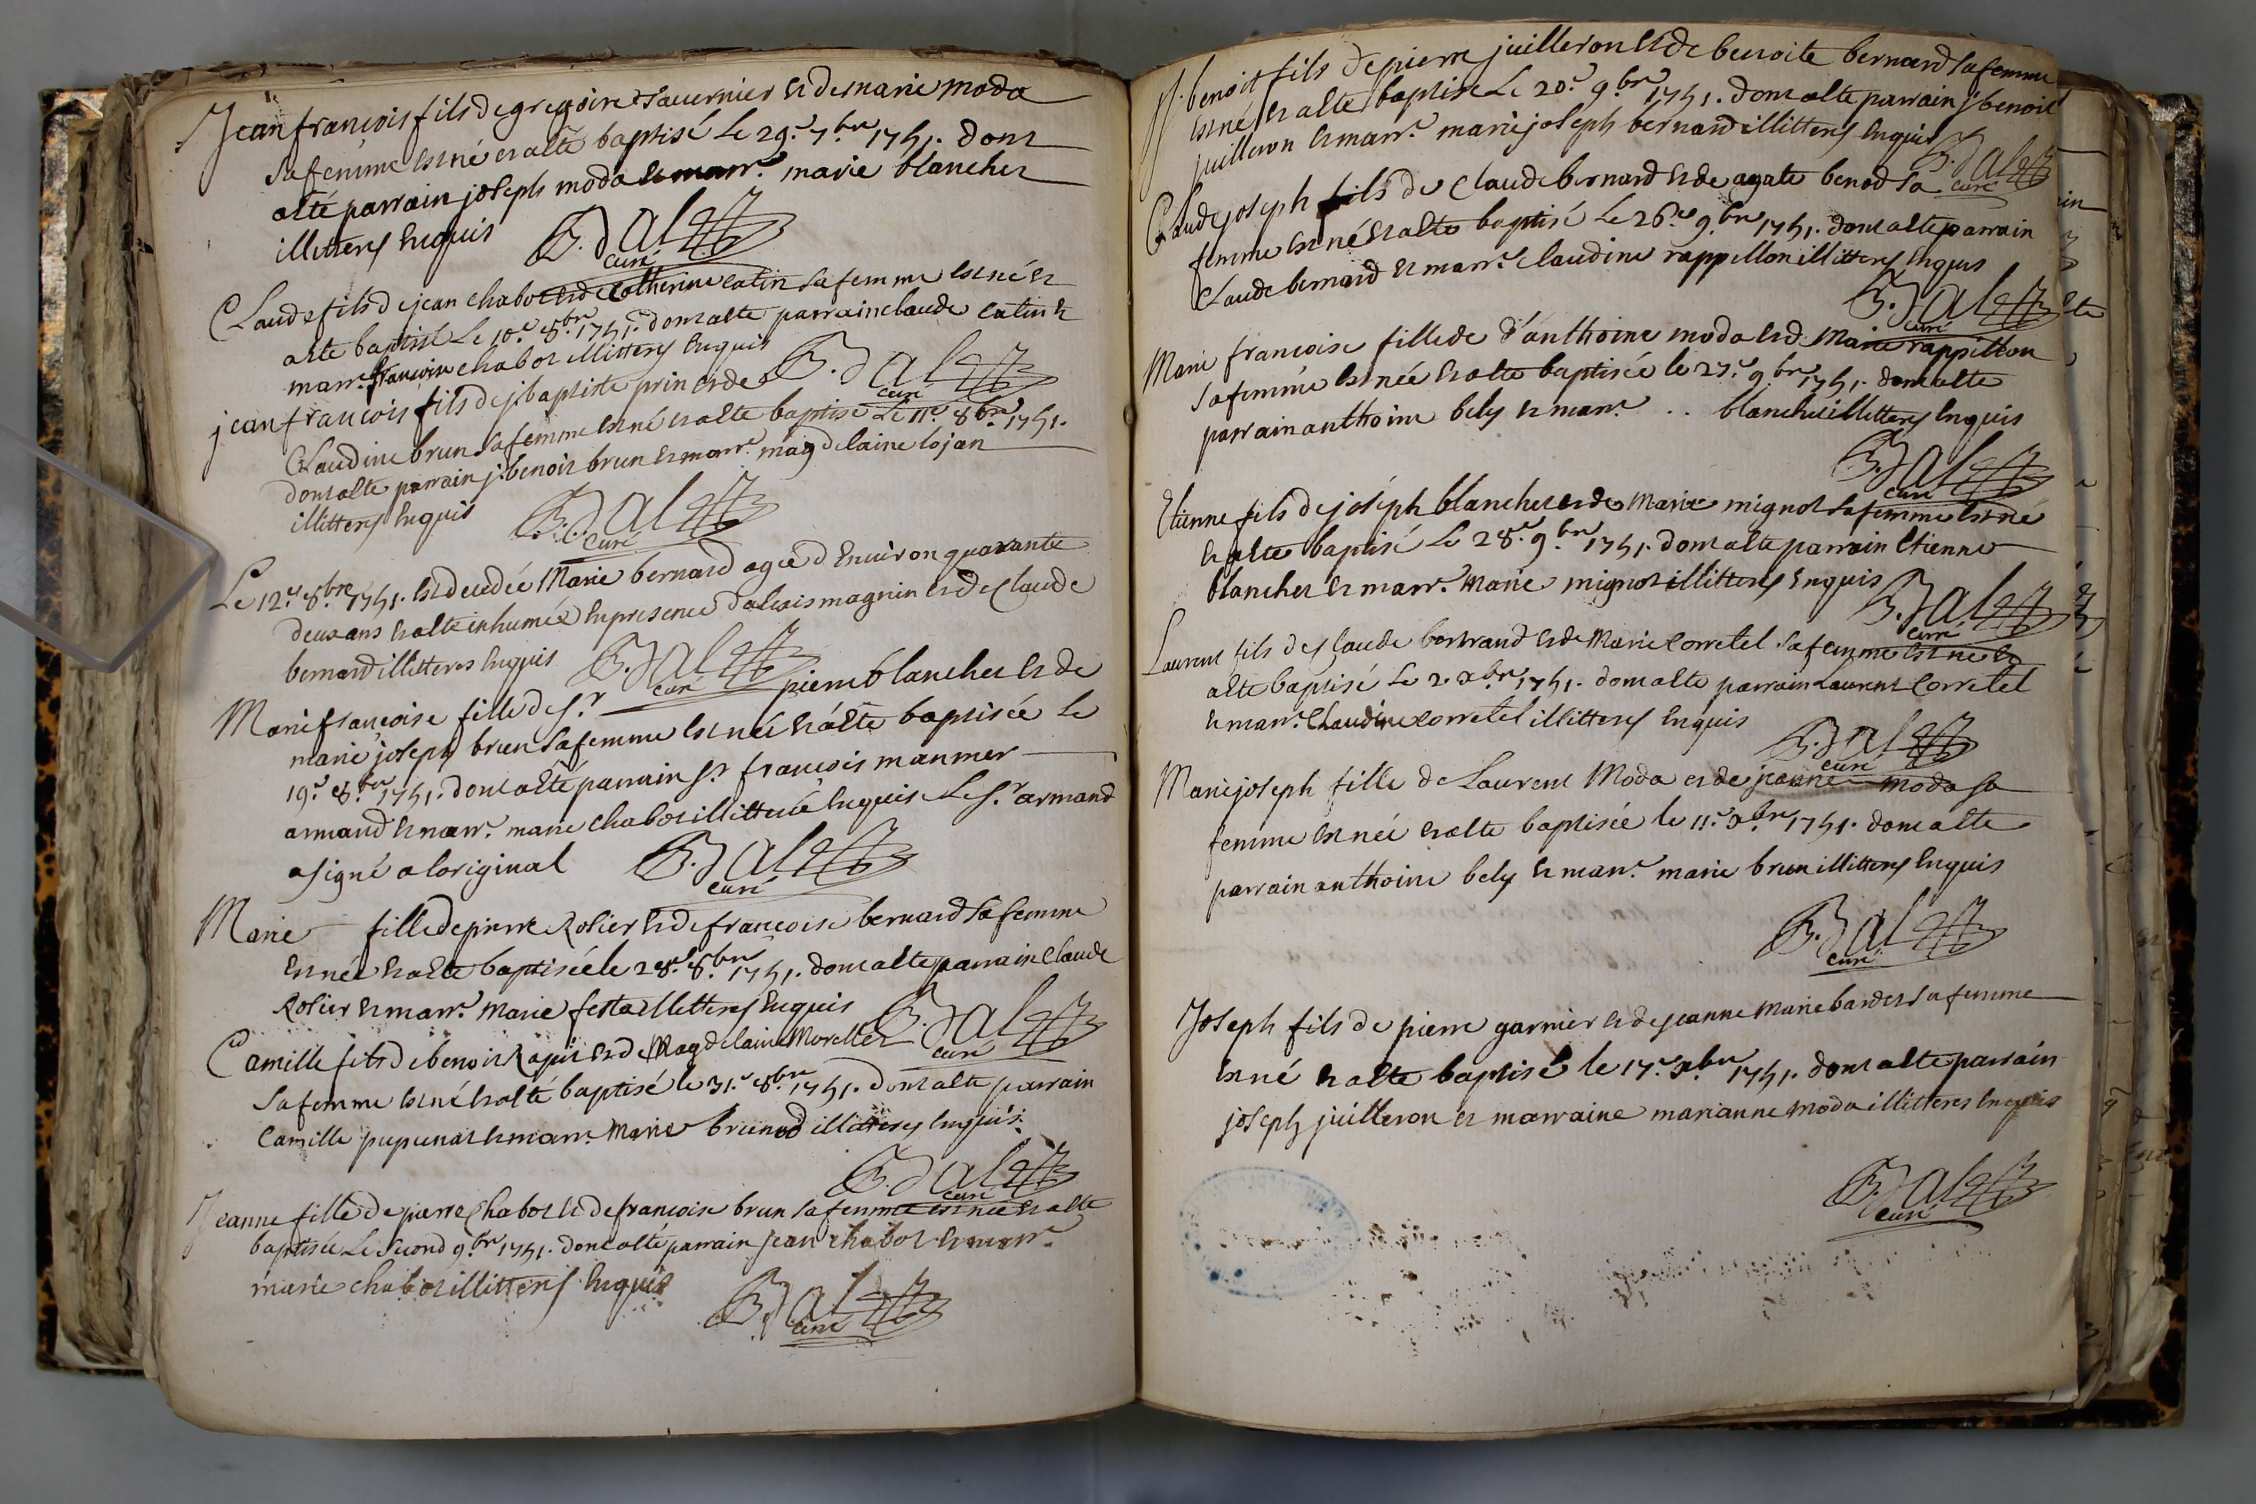 Jean françois fils de gregoire tavernier et de marie moda
sa femme est né et a ete baptisé le 29.e 7.bre 1751. dont
a eté parrain joseph moda et marr.e marie blanchet
illitterés Enquis B. Dal
curé
Claude fils de jean chabot et de Catherine catin sa femme est né et
a ete baptisé Le 10.e 8.bre 1751. dont a ete parrain claude catin et
marr.e francoise chabot illitterés Enquis B. Dal
curé
jean francois fils de j baptiste prin et de
Claudine brun sa femme est né et a ete baptisé Le 11.e 8bre 1751.
dont a ete parrain j. benoit brun et marr.e magdelaine lojan
illitterés Enquis B. Dal
curé
Le 12.e 8.bre 1751. est decedée Marie bernard agée d Environ quarante
deux ans et a ete inhumée En presence d alexis magnin et de Claude
bernard illitteres Enquis B. Dal
curé
Marie françoise fille de s.r pierre blanchet et de
marie joseph brun sa femme est née et a éte baptisée le
19.e 8.bre 1751. dont a été parrain s.r françois manmer
armand et marr.e marie chabot illitterée Enquis Le s.r armand
a signé a loriginal B. Dal
curé
Marie fille de pierre Rosier et de francoise bernard sa femme
est née et a ete baptisée le 28.e 8.bre 1751. dont a ete parrain Claude
Rosier et marr.e Marie festa illitterés Enquis B. Dal
curé
Camille fils de benoit Ragui et de Magdelaine Morellet
sa femme est né et a eté baptisé le 31.e 8.bre 1751. dont a ete parrain
Camille pupunat et marr.e Marie brunod illitterés Enquis.
B. Dal
curé
Jeanne fille de pierre Chabot et de francoise brun sa femme est née et a ete
baptisée Le Second 9.bre 1751. dont a eté parrain jean chabot et marr.e
marie chabot illitterés Enquis
B. Dal
curé
J. benoit fils de pierre juilleron et de benoite bernard sa femme
est né et a ete baptisé Le 20.e 9.bre 1751. dont a ete parrain j benoit
juilleron et marr.e marie joseph bernard illitterés Enquis
B. Dal
curé
Claude joseph fils de Claude bernard et de agate benod sa
femme est né et a ete baptisé Le 26.e 9.bre 1751. dont a ete parrain
Claude bernard et marr.e claudine rappillon illitterés Enquis
B. Dal
curé
Marie francoise fille de d'anthoine moda et d. Marie rappillon
sa femme est née et a ete baptisée le 27.e 9.bre 1751. dont a ete
parrain anthoine bely et marr.e .. blanchet illitterés Enquis
B. Dal
curé
Etienne fils de joséph blanchet et de Marie mignot sa femme est né
et a ete baptisé Le 28.e 9.bre 1751. dont a ete parrain Etienne
blanchet et marr.e Marie mignot illitterés Enquis
B. Dal
curé
Laurent fils de Claude bertrand et de Marie Corretel sa femme est né et
a ete baptisé Le 2. xbre 1751. dont a ete parrain Laurent Corretel
et marr.e Claudine Corretel illitterés Enquis
B. Dal
curé
Marie joseph fille de Laurent Moda et de jeanne moda sa
femme est née et a ete baptisée le 11.e xbre 1751. dont a ete
parrain anthoine bely et marr.e marie brun illitterés Enquis
B. Dal
curé
Joseph fils de pierre garnier et de jeanne Marie bardet sa femme
est né et a ete baptisé le 17.e xbre 1751. dont a ete parrain
joseph juilleron et marraine marianne moda illitteres Enquis
B. Dal
curé